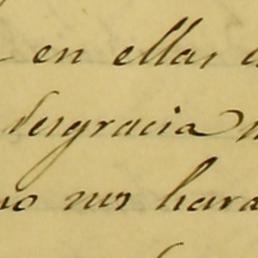 en ellas
desgracia
no nos hara